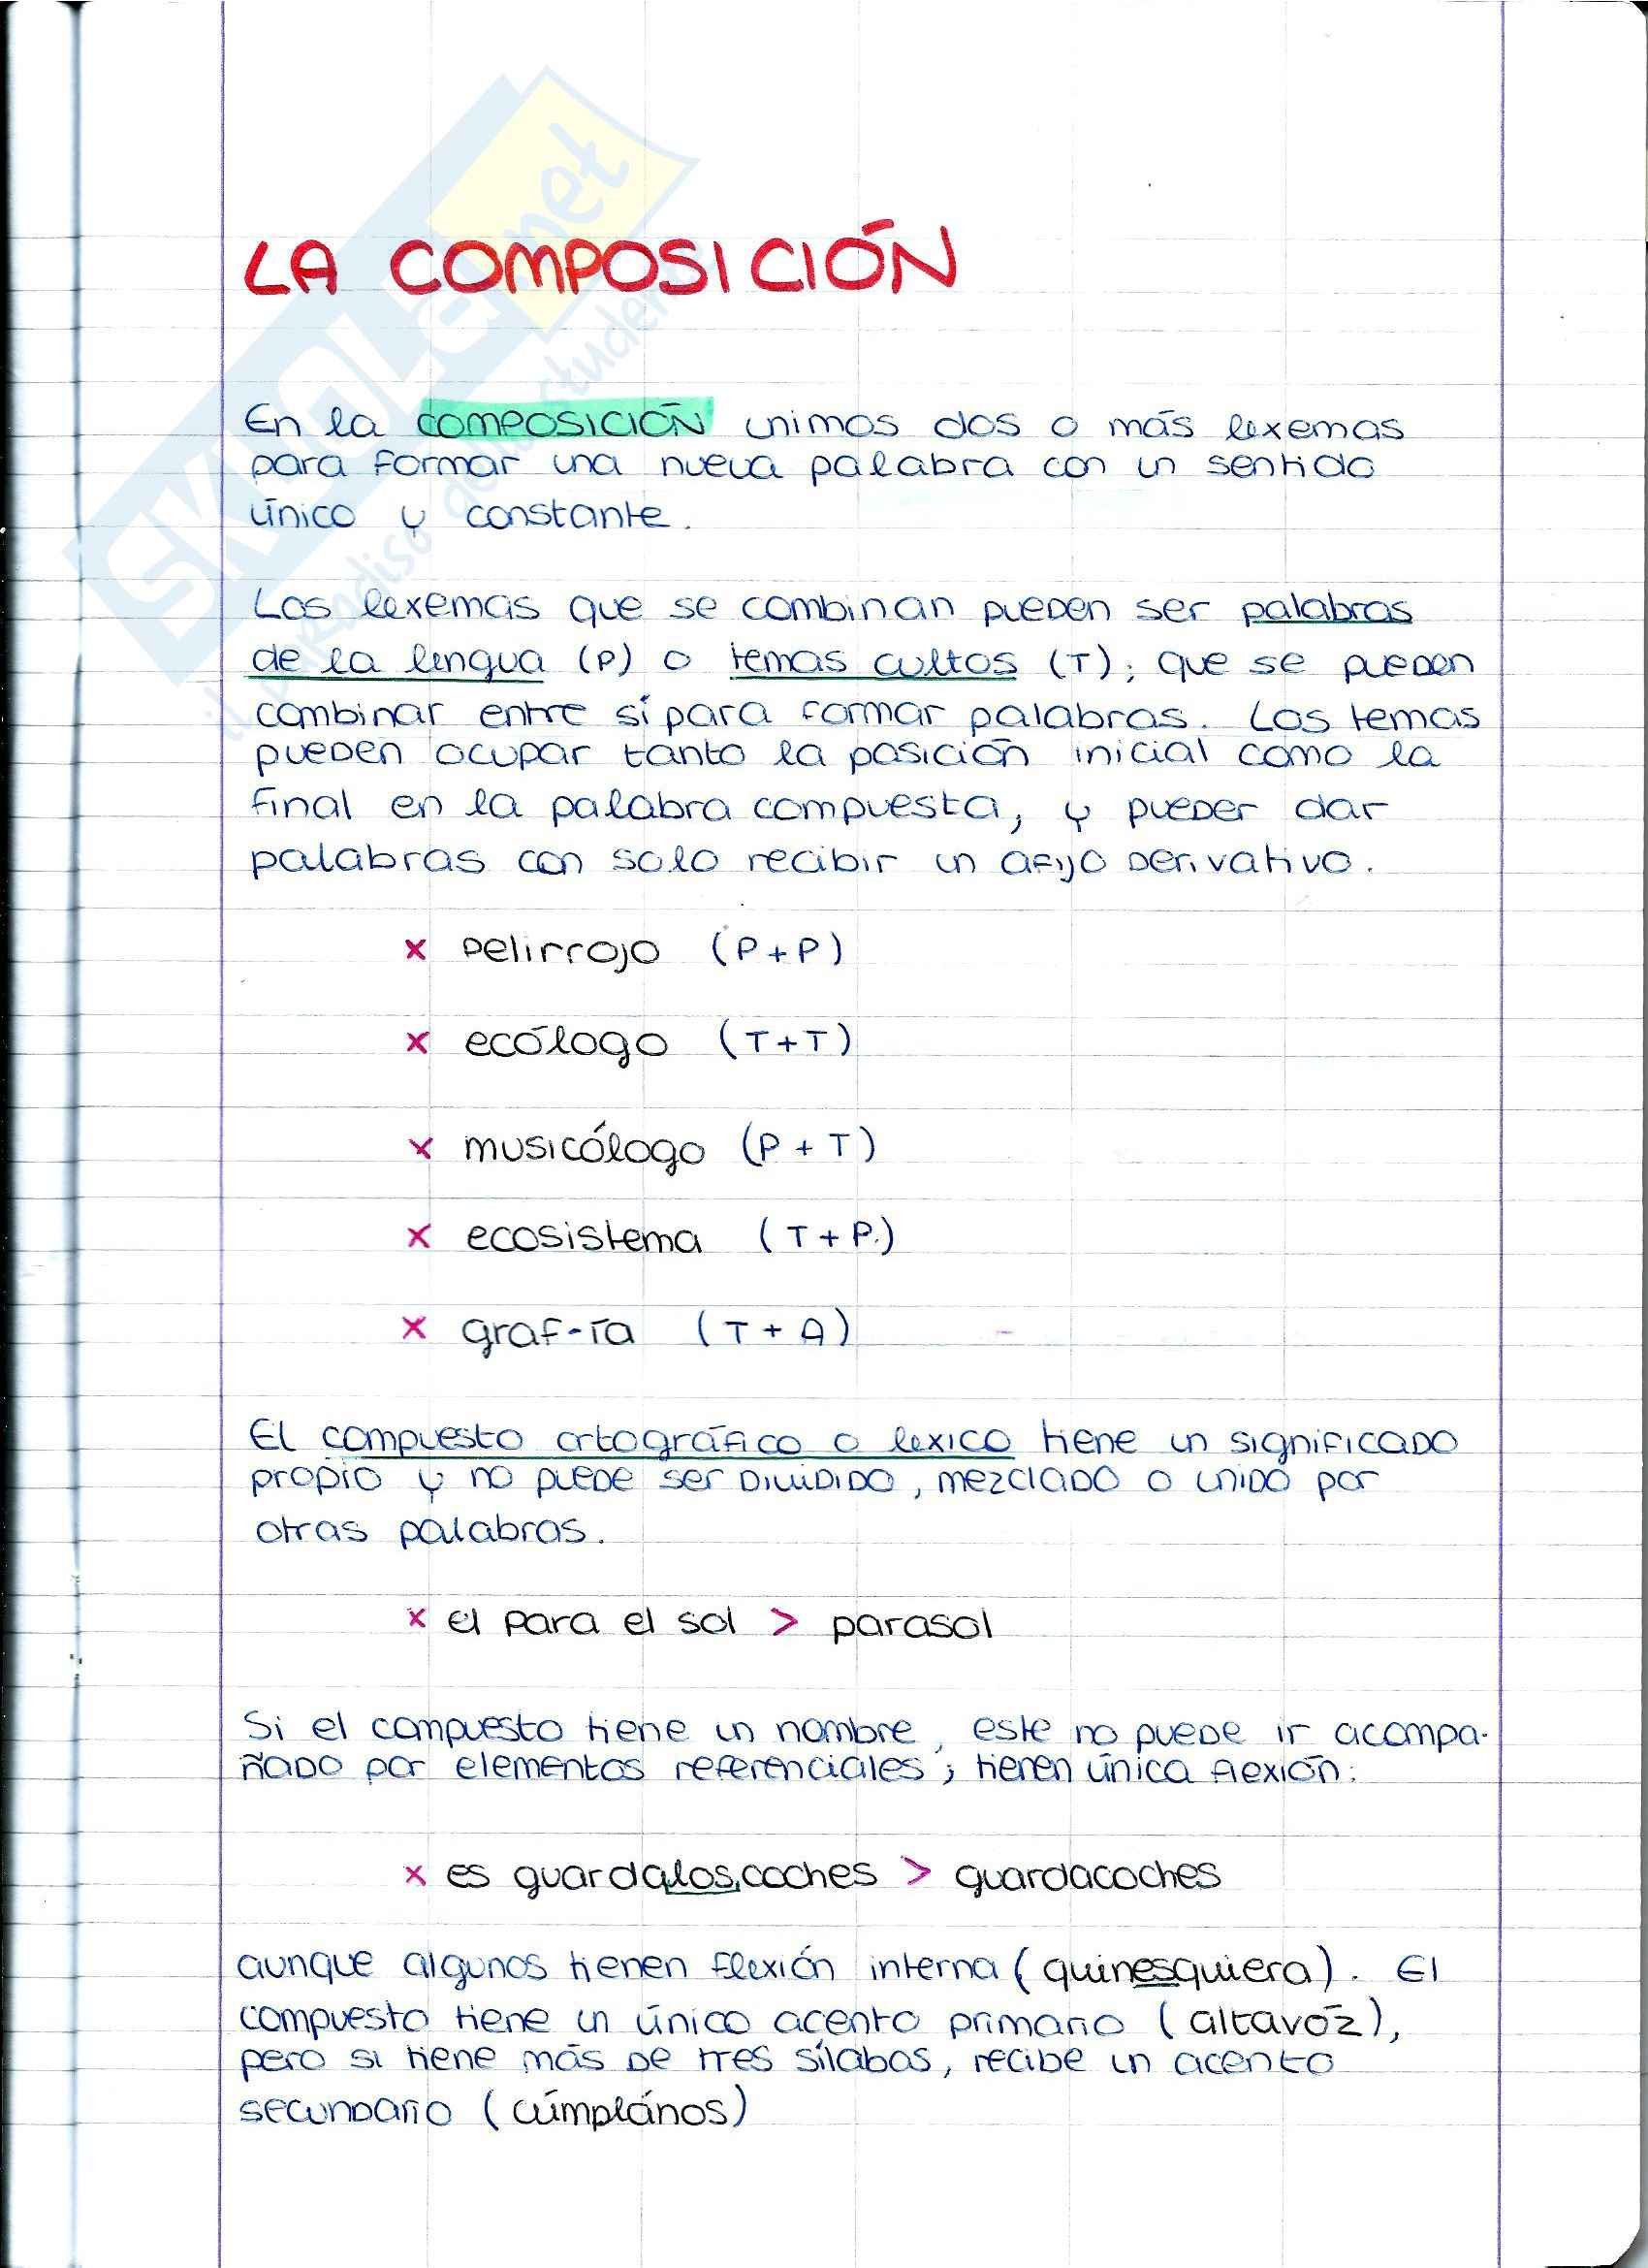 LA COMPOSICIÓN
En la COMPOSICIÓN unimos dos o más lexemas
para formar una nueva palabra con un sentido
único y constante.
Los lexemas que se combinan pueden ser palabras
de la lengua (P) o temas cultos (T); que se pueden
combinar entre sí para formar palabras. Los temas
pueden ocupar tanto la posición inicial como la
final en la palabra compuesta, y pueder dar
palabras con solo recibir un afijo derivativo.
x pelirrojo (P+P)
x ecólogo (T+T)
x musicólogo (P + T)
x ecosistema (T + P.)
x graf-ía (T + A)
El compuesto ortográfico o lexico tiene un significado
propio y no puede ser dividido, mezclado o unido por
otras palabras.
x el para el sol > parasol
Si el compuesto tiene un nombre, este no puede ir acompa-
ñado por elementos referenciales; tienen única flexión:
x es guardaloscoches > guardacoches
aunque algunos tienen flexión interna (quinesquiera). El
compuesto tiene un único acento primario (altavóz),
pero si tiene más de tres sílabas, recibe un acento
secundario (cúmpláños)
SKUOLA.net